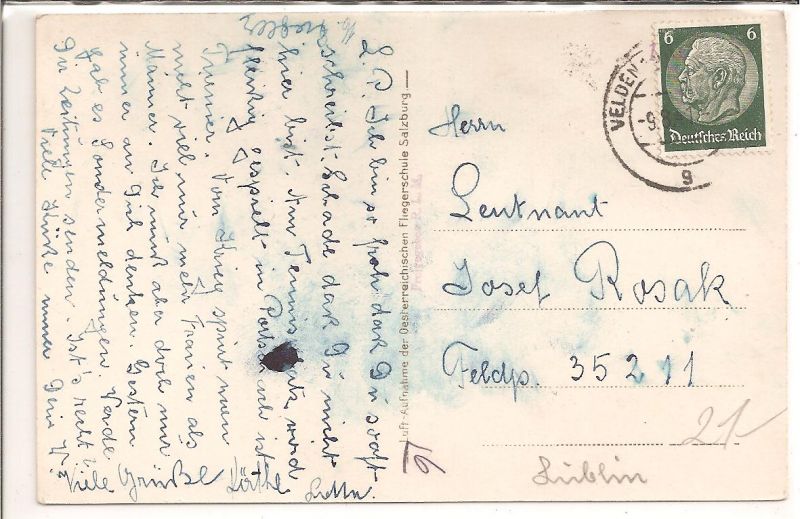 L. P. Ich bin so froh daß Du so oft
schreibst. Schade daß Du nicht
hier bist. Am Tennisplatz wird
fleißig gespielt in Pörtschach ist
Turnier. Vom Krieg spürt man
nicht viel nur mehr Frauen als
Männer. Ich muß aber doch nur
immer an Dich denken. Gestern
gab es Sondermeldungen. Werde
Dir Zeitungen senden. Ist's recht?
Viele Küsse immer Dein
Viele Grüße Käthe
Luft-Aufnahme der Oesterreichischen Fliegerschule Salzburg
6 6
Deutsches Reich
VELDEN
-9.8
g
Herrn
Leutnant
Josef Rosak
Feldp. 35211
21
Lublin